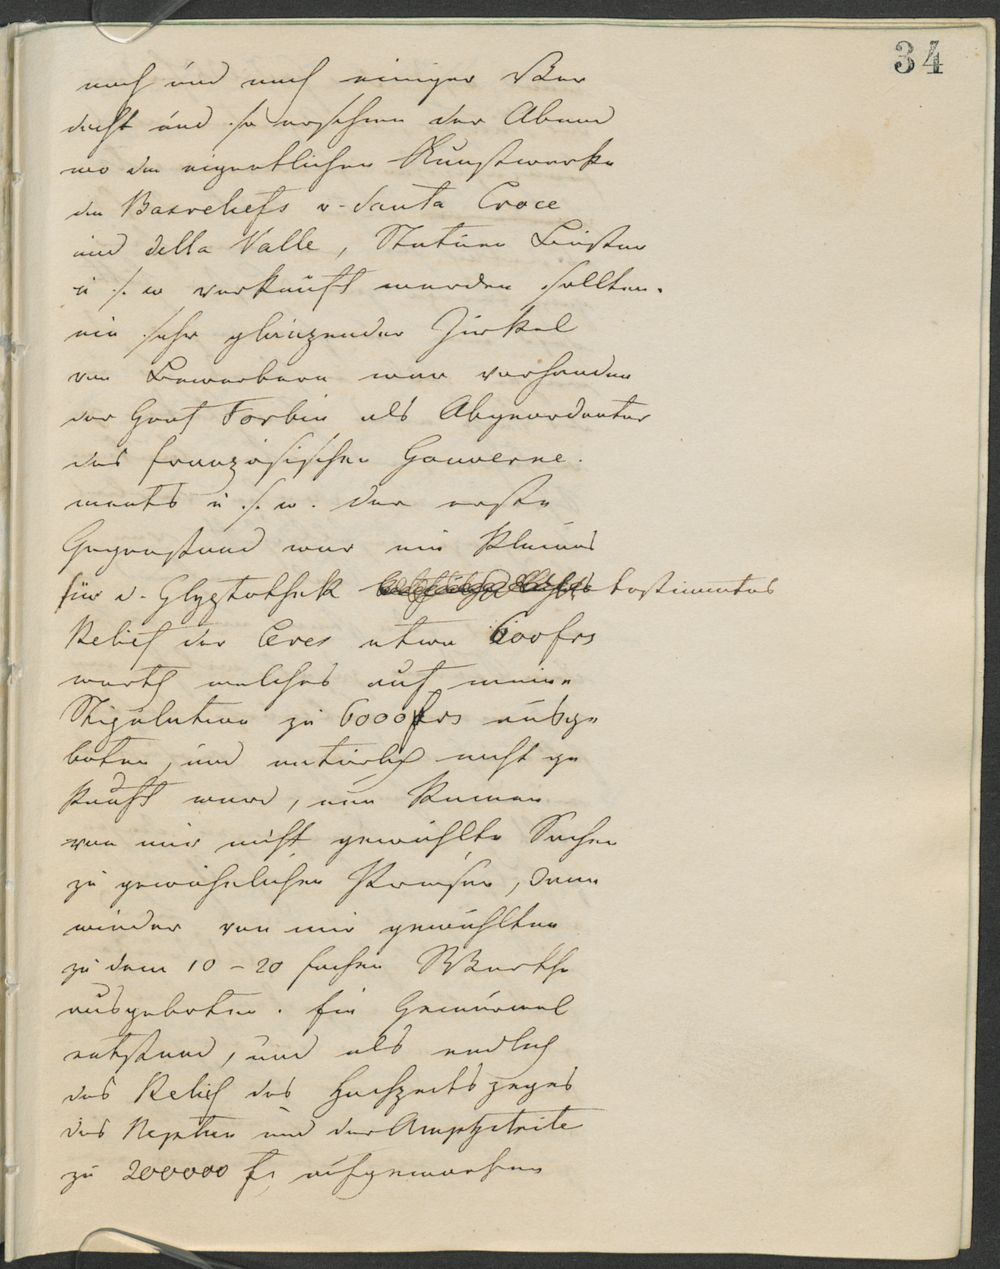 34
nach und nach einiger Ver
dacht und so erschien der Abend
wo die eigentlichen Kunstwerke
die Basreliefs v. Santa Croce
und della Valle, Statuen Büsten
u. s. w verkauft werden sollten.
ein sehr glänzender Zirkel
von Bewerbern war vorhanden
der Graf Forbin als Abgeordneter
des französischen Gouverne-
ments u. s. w. der erste
Gegenstand war ein kleines
für d. Glyptothek bestimmtes
Relief der Ceres etwa 600 frs
werth welches auf meine
Stipulation zu 6000 frs ausge
boten, und natürlich nicht ge
kauft ward, nun kamen
von mir nicht gewählte Sachen
zu gewöhnlichen Preisen, dann
wieder von mir gewählten
zu dem 10 – 20 fachen Werthe
ausgeboten. Ein Gemurmel
entstand, und als endlich
das Relief des Hochzeitszuges
des Neptun und der Amphitrite
zu 200000 fr. aufgeworfen